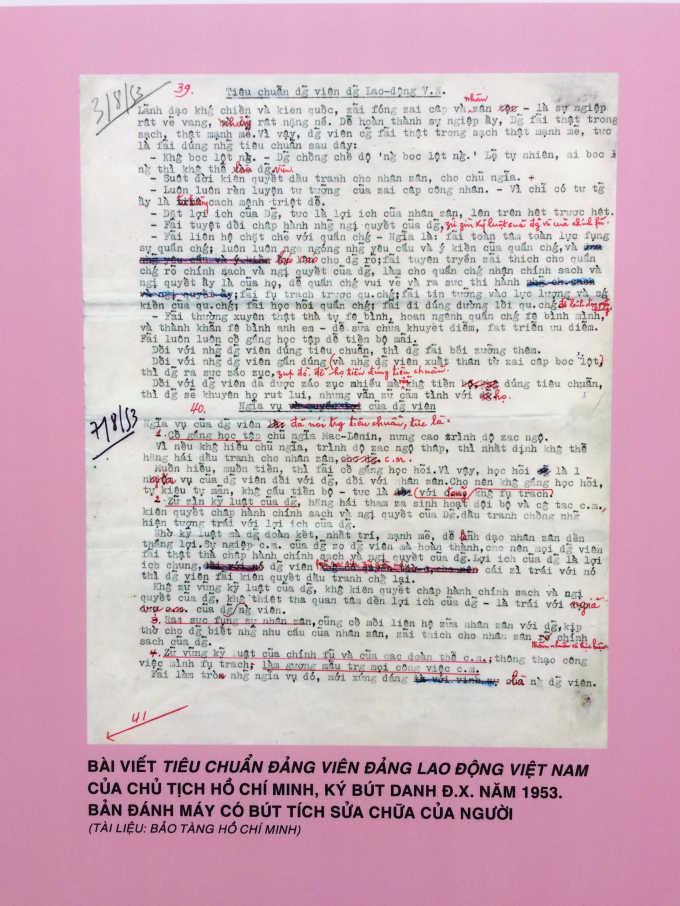 3/8/53
39.
Tiêu chuẩn đg viên đg Lao-động V.N.
nhân
Lãnh đạo khg chiến và kiến quốc, zải fóng zai cấp và zân - là sự ngiệp
rất vẻ vang, rất nặng nề. Để hoàn thành sự ngiệp ấy, Đg fải thật trong
sạch, thật mạnh mẽ. Vì vậy, đg viên cg fải thật trong sạch thật mạnh mẽ, tức
là fải đúng nhg tiêu chuẩn sau đây:
- Khg bóc lột ng. - Đg chống chế độ 'ng bóc lột ng.' Lẽ tự nhiên, ai bóc
ng thì khg thể đg viên.
- Suốt đời kiên quyết đấu tranh cho nhân zân, cho chủ ngĩa.
- Luôn luôn rèn luyện tư tưởng của zai cấp công nhân. - Vì chỉ có tư tg
ấy là cách mệnh triệt để.
- Đặt lợi ích của Đg, tức là lợi ích của nhân zân, lên trên hết trước hết.
- Fải tuyệt đối chấp hành nhg ngị quyết của đg, zữ zìn kỷ luật của đg và của chính fủ.
- Fải liên hệ chặt chẽ với quần chg - Ngĩa là: fải toàn tâm toàn lực fụng
sự quần chg; luôn luôn nge ngóng nhg yêu cầu và ý kiến của quần chg, và
cho đg rõ; fải tuyên truyền zải thích cho quần
chg rõ chính sách và ngị quyết của đg, làm cho quần chg nhận chính sách và
ngị quyết ấy là của họ, để quần chg vui vẻ và ra sức thi hành
fải fụ trách trước qu.chg; fải tin tưởng vào lực lượng và sg
kiến của qu.chg; fải học hỏi quần chg; fải đi đúng đường lối qu.chg
- Fải thường xuyên thật thà tự fê bình, hoan ngênh quần chg fê bình mình,
và thành khẩn fê bình anh em - để sửa chữa khuyết điểm, fát triển ưu điểm.
Fải luôn luôn cố gắng học tập để tiến bộ mãi.
Đối với nhg đg viên đúng tiêu chuẩn, thì đg fải bồi zưỡng thêm.
Đối với nhg đg viên gần đúng (và nhg đg viên xuất thân từ zai cấp bóc lột,)
thì đg ra sức záo zục, zúp đỡ, để họ tiến đúng tiêu chuẩn.
Đối với đg viên đã được záo zục nhiều mà vẫn khg tiến đúng tiêu chuẩn,
thì đg sẽ khuyên họ rút lui, nhưng vẫn zữ cảm tình với họ.
7/8/53
40.
Ngĩa vụ của đg viên
Ngĩa vụ của đg viên đã nói trg tiêu chuẩn, tức là:
1. Cố gắng học tập chủ ngĩa Mác-Lênin, nung cao trình độ zác ngộ.
Vì nếu khg hiểu chủ ngĩa, trình độ zác ngộ thấp, thì nhất định khg thể
hăng hái đấu tranh cho nhân zân, c.m.
Muốn hiểu, muốn tiến, thì fải cố gắng học hỏi. Vì vậy, học hỏi là 1
ngĩa vụ của đg viên đối với đg, đối với nhân zân. Cho nên khg gắng học hỏi,
tự kiêu tự mãn, khg cầu tiến bộ - tức là (với đảng) khg fụ trách
2. Zữ zìn kỷ luật của đg, hăng hái tham za sinh hoạt đội bộ và cg tác c.m.,
kiên quyết chấp hành chính sách và ngị quyết của Đg. đấu tranh chống nhg
hiện tượng trái với lợi ích của đg.
Nhờ kỷ luật mà đg đoàn kết, nhất trí, mạnh mẽ, để lãnh đạo nhân zân đến
thắng lợi. Sự ngiệp c.m. của đg zo đg viên mà hoàn thành, cho nên mọi đg viên
fải thật thà chấp hành chính sách và ngị quyết của đg. Lợi ích của đg là lợi
ích chung, đg viên cái zì trái với nó
thì đg viên fải kiên quyết đấu tranh chg lại.
Khg zữ vững kỷ luật của đg, khg kiên quyết chấp hành chính sách và ngị
quyết của đg, khg thiết tha quan tâm đến lợi ích của đg - là trái với ngĩa
của đg viên.
3. Ham sức fụng sự nhân zân, củng cố mối liên hệ zữa nhân zân với đg, kịp
thờ cho đg biết nhg nhu cầu của nhân zân, zải thích cho nhân zân rõ chính
sách của đg.
4. Zữ vững kỷ luật của chính fủ và của các đoàn thể c.m.; thông thạo công
việc mình fụ trách; làm gương mẫu trg mọi công việc c.m.
Fải làm tròn nhg ngĩa vụ đó, mới xứng đáng là ng đg viên.
41
BÀI VIẾT TIÊU CHUẨN ĐẢNG VIÊN ĐẢNG LAO ĐỘNG VIỆT NAM
CỦA CHỦ TỊCH HỒ CHÍ MINH, KÝ BÚT DANH Đ.X. NĂM 1953.
BẢN ĐÁNH MÁY CÓ BÚT TÍCH SỬA CHỮA CỦA NGƯỜI
(TÀI LIỆU: BẢO TÀNG HỒ CHÍ MINH)